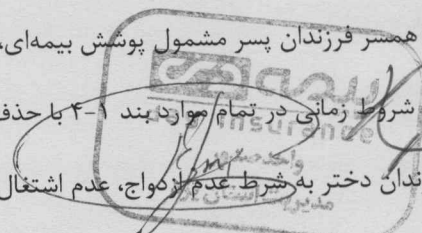 همسر فرزندان پسر مشمول پوشش بیمه‌ای،
شروط زمانی در تمام موارد بند ۱-۴ با حذف
ندان دختر به شرط عدم ازدواج، عدم اشتغال
بیمه
insurance
واحد صدور
مدیریت استان